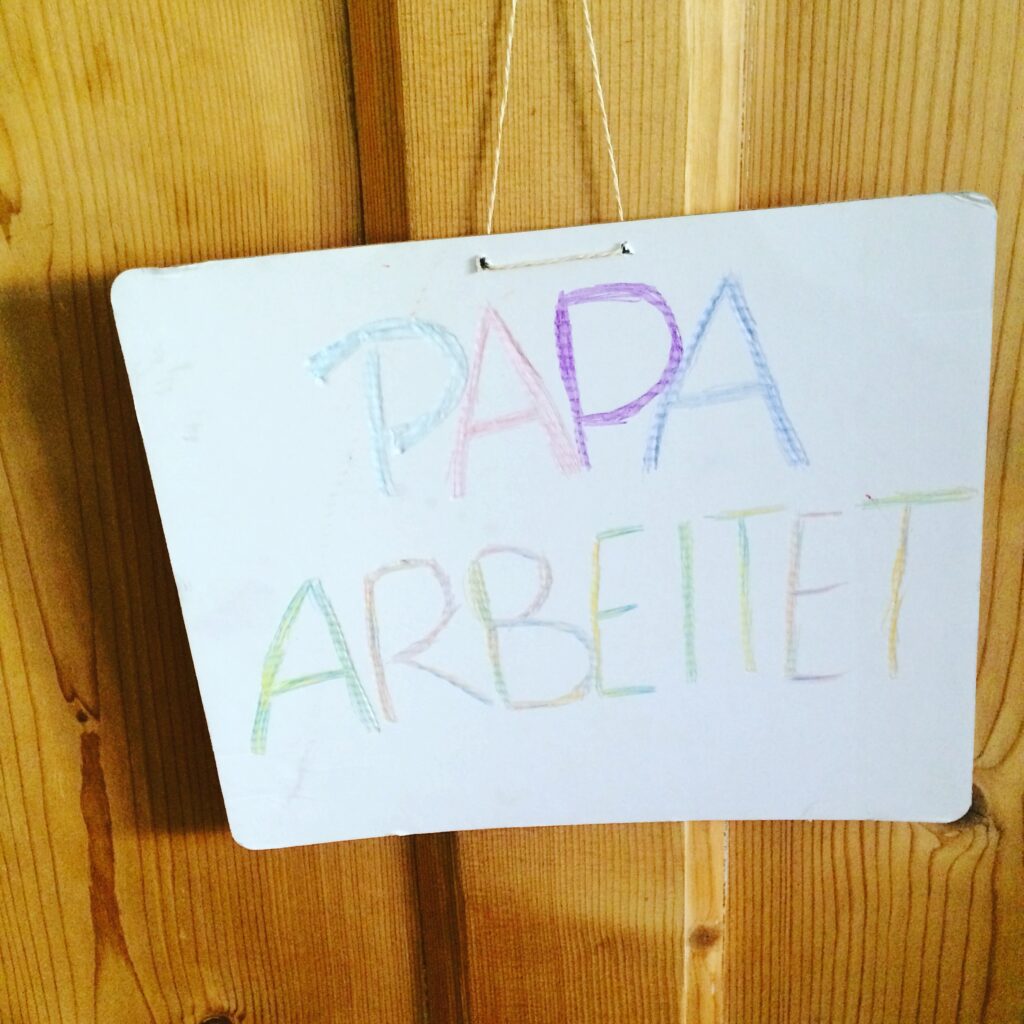 PAPA
ARBEITET